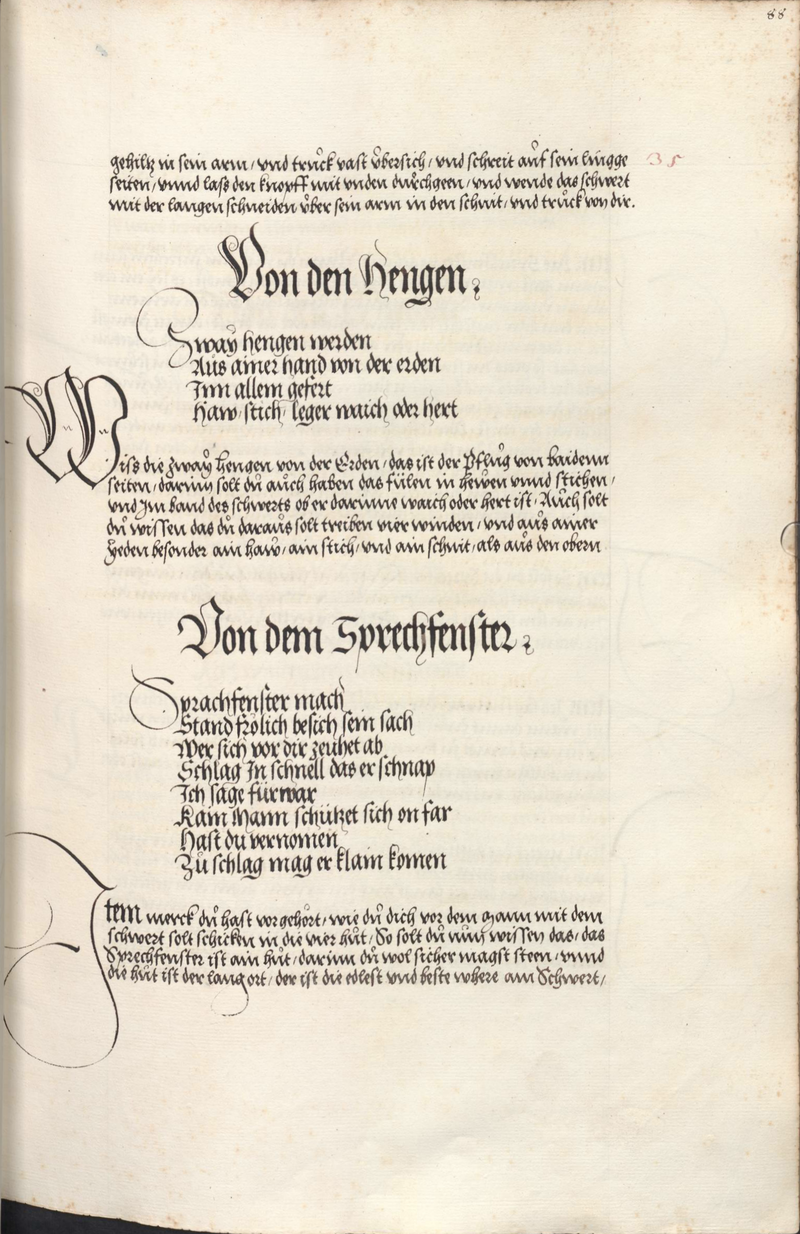 88
gehiltz in sein arm / vnd truck vast vbersich / vnd schreit auf sein lingge
35
seiten / vnnd lass den knopff mit vnden durchgeen / vnd wende das schwert
mit der langen schneiden vber sein arm in den schnit / vnd truck von dir.
Von den Hengen.
Zway hengen werden
Aus ainer hand von der erden
Inn allem gefert
Haw / stich / leger waich oder hert
Wiss die zway hengen von der Erden / das ist der Pflug von baidenn
seiten / darinn solt du auch haben das fülen in hewen vnnd stichen /
vnd Im band des schwerts ob er darinne waich oder hert ist / Auch solt
du wissen das du daraus solt treiben vier winden / vnd aus ainer
yeden besonder ain haw / ain stich / vnd ain schnit / als aus den obern
Von dem Sprechfenster.
Sprachfenster mach
Stand frölich besich sein sach
Wer sich vor dir zeuhet ab
Schlag In schnell das er schnap
Ich sage fürwar
Kain Mann schützet sich on far
Hast du vernomen
Zu schlag mag er klain komen
Item merck du hast vor gehört / wie du dich vor dem mann mit dem
schwert solt schicken in die vier hut / So solt du nun wissen das / das
Sprechfenster ist ain hut / darinn du wol sicher magst steen / vnnd
die hut ist der lang ort / der ist die edlest vnd beste where am Schwert /